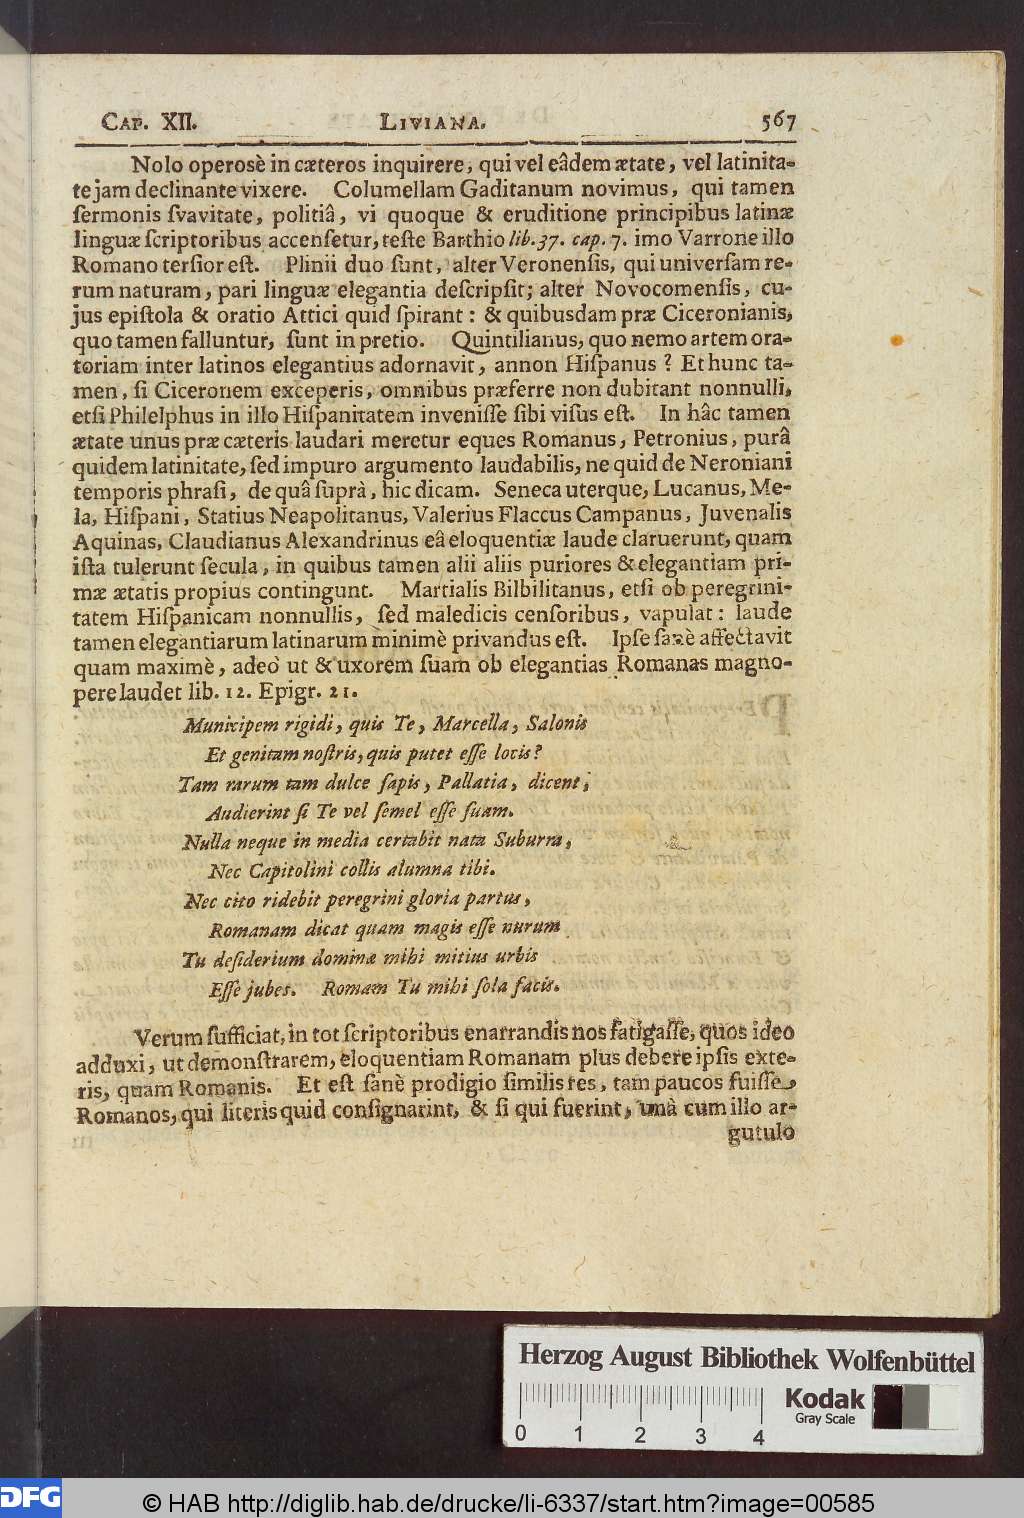 CAP. XII. LIVIANA. 567
Nolo operosè in cæteros inquirere, qui vel eâdem ætate, vel latinita-
te jam declinante vixere. Columellam Gaditanum novimus, qui tamen
ſermonis ſvavitate, politiâ, vi quoque & eruditione principibus latinæ
linguæ ſcriptoribus accenſetur, teſte Barthio lib. 37. cap. 7. imo Varrone illo
Romano terſior eſt. Plinii duo ſunt, alter Veronenſis, qui univerſam re-
rum naturam, pari linguæ elegantia deſcripſit; alter Novocomenſis, cu-
jus epiſtola & oratio Attici quid ſpirant: & quibusdam præ Ciceronianis,
quo tamen falluntur, ſunt in pretio. Quintilianus, quo nemo artem ora-
toriam inter latinos elegantius adornavit, annon Hiſpanus? Et hunc ta-
men, ſi Ciceronem exceperis, omnibus præferre non dubitant nonnulli,
etſi Philelphus in illo Hiſpanitatem inveniſſe ſibi viſus eſt. In hâc tamen
ætate unus præ cæteris laudari meretur eques Romanus, Petronius, purâ
quidem latinitate, ſed impuro argumento laudabilis, ne quid de Neroniani
temporis phraſi, de quâ ſuprà, hic dicam. Seneca uterque, Lucanus, Me-
la, Hiſpani, Statius Neapolitanus, Valerius Flaccus Campanus, Juvenalis
Aquinas, Claudianus Alexandrinus eâ eloquentiæ laude claruerunt, quam
iſta tulerunt ſecula, in quibus tamen alii aliis puriores & elegantiam pri-
mæ ætatis propius contingunt. Martialis Bilbilitanus, etſi ob peregrini-
tatem Hiſpanicam nonnullis, ſed maledicis cenſoribus, vapulat: laude
tamen elegantiarum latinarum minimè privandus eſt. Ipſe ſanè affectavit
quam maximè, adeò ut & uxorem ſuam ob elegantias Romanas magno-
pere laudet lib. 12. Epigr. 21.
Municipem rigidi, quis Te, Marcella, Salonis
Et genitam noſtris, quis putet eſſe locis?
Tam rarum tam dulce ſapis, Pallatia, dicent;
Audierint ſi Te vel ſemel eſſe ſuam.
Nulla neque in media certabit nata Suburra,
Nec Capitolini collis alumna tibi.
Nec cito ridebit peregrini gloria partus,
Romanam dicat quam magis eſſe nurum
Tu deſiderium dominæ mihi mitius urbis
Eſſe jubes. Romam Tu mihi ſola facis.
Verum ſufficiat, in tot ſcriptoribus enarrandis nos fatigaſſe, quos ideo
adduxi, ut demonſtrarem, eloquentiam Romanam plus debere ipſis exte-
ris, quam Romanis. Et eſt ſanè prodigio ſimilis res, tam paucos fuiſſe
Romanos, qui literis quid conſignarint, & ſi qui fuerint, unà cum illo ar-
gutulo
Herzog August Bibliothek Wolfenbüttel
Kodak
Gray Scale
0 1 2 3 4
DFG © HAB http://diglib.hab.de/drucke/li-6337/start.htm?image=00585